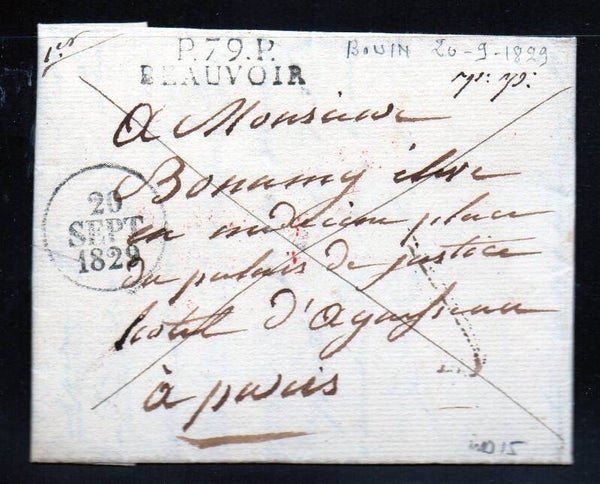 1er
P.79.P.
BEAUVOIR
BOUIN 20-9-1829
p. p.
A Monsieur
Bonamy élève
en médecine place
du palais de justice
hotel d'aguesseau
à paris
20
SEPT
1829